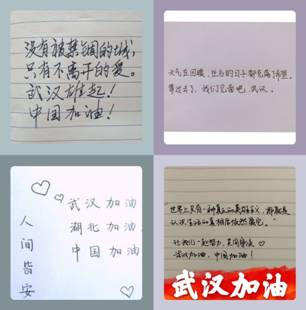 没有被禁锢的城,
只有不离开的爱。
武汉雄起!
中国加油!
天气在回暖,往后的日子都充满希望。
春过去了,我们见面吧,武汉。
武汉 加油
湖北 加油
中国 加油
人间皆安
世界上只有一种真正的英雄主义,那就是
认识生活的真相后依然热爱它。
让我们一起努力,共同奋战
武汉加油,中国加油!
武汉加油